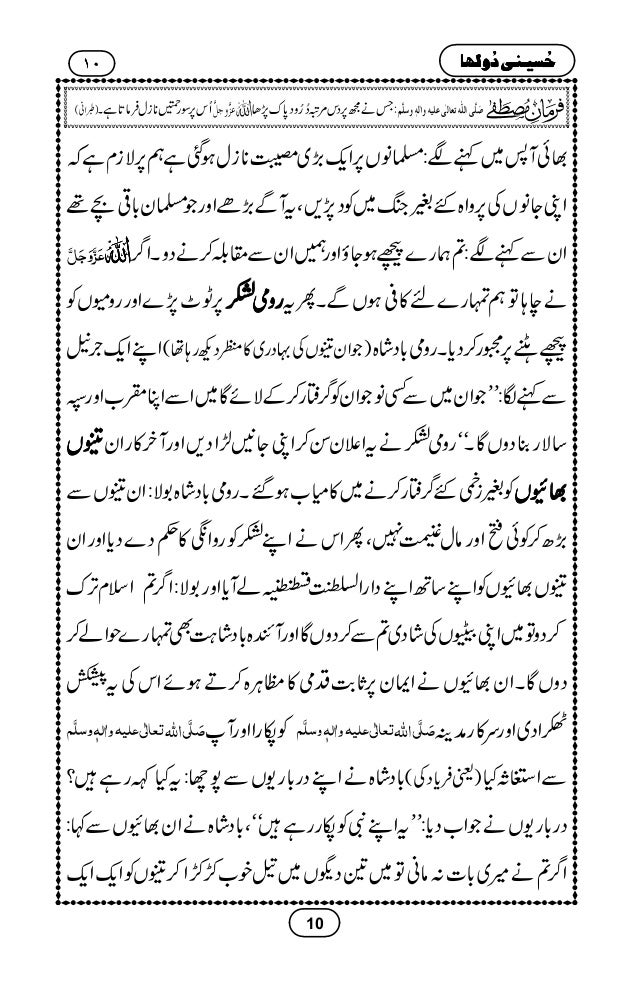 حُسینی دُولھا
۱۰
فرمانِ مُصطَفٰے صَلَّی اللہ تعالیٰ علیہ والہٖ وسلَّم: جس نے مجھ پر دس مرتبہ دُرُود پاک پڑھا اللہ عَزَّوَجَلَّ اُس پر سو رحمتیں نازل فرماتا ہے۔ (طبرانی)
بھائی آپس میں کہنے لگے: مسلمانوں پر ایک بڑی مصیبت نازل ہو گئی ہے ہم پر لازم ہے کہ
اپنی جانوں کی پرواہ کئے بغیر جنگ میں کود پڑیں، یہ آگے بڑھے اور جو مسلمان باقی بچے تھے
ان سے کہنے لگے: تم ہمارے پیچھے ہو جاؤ اور ہمیں ان سے مقابلہ کرنے دو۔ اگر اللہ عَزَّوَجَلَّ
نے چاہا تو ہم تمہارے لئے کافی ہوں گے۔ پھر یہ رومی لشکر پر ٹوٹ پڑے اور رومیوں کو
پیچھے ہٹنے پر مجبور کر دیا۔ رومی بادشاہ (جو ان تینوں کی بہادری کا منظر دیکھ رہا تھا) اپنے ایک جرنیل
سے کہنے لگا: ’’جو ان میں سے کسی نوجوان کو گرفتار کر کے لائے گا میں اسے اپنا مقرب اور سپہ
سالار بنا دوں گا۔‘‘ رومی لشکر نے یہ اعلان سن کر اپنی جانیں لڑا دیں اور آخر کار ان تینوں
بھائیوں کو بغیر زخمی کئے گرفتار کرنے میں کامیاب ہو گئے۔ رومی بادشاہ بولا: ان تینوں سے
بڑھ کر کوئی فتح اور مال غنیمت نہیں، پھر اس نے اپنے لشکر کو روانگی کا حکم دے دیا اور ان
تینوں بھائیوں کو اپنے ساتھ اپنے دارالسلطنت قسطنطنیہ لے آیا اور بولا: اگر تم اسلام ترک
کردو تو میں اپنی بیٹیوں کی شادی تم سے کردوں گا اور آئندہ بادشاہت بھی تمہارے حوالے کر
دوں گا۔ ان بھائیوں نے ایمان پر ثابت قدمی کا مظاہرہ کرتے ہوئے اس کی یہ پیشکش
ٹھکرا دی اور سرکار مدینہ صَلَّی اللہ تعالیٰ علیہ والہٖ وسلَّم کو پکارا اور آپ صَلَّی اللہ تعالیٰ علیہ والہٖ وسلَّم
سے استغاثہ کیا (یعنی فریاد کی) بادشاہ نے اپنے درباریوں سے پوچھا: یہ کیا کہہ رہے ہیں؟
درباریوں نے جواب دیا: ’’یہ اپنے نبی کو پکار رہے ہیں‘‘، بادشاہ نے ان بھائیوں سے کہا:
اگر تم نے میری بات نہ مانی تو میں تین دیگوں میں تیل خوب کڑکڑا کر تینوں کو ایک ایک
10